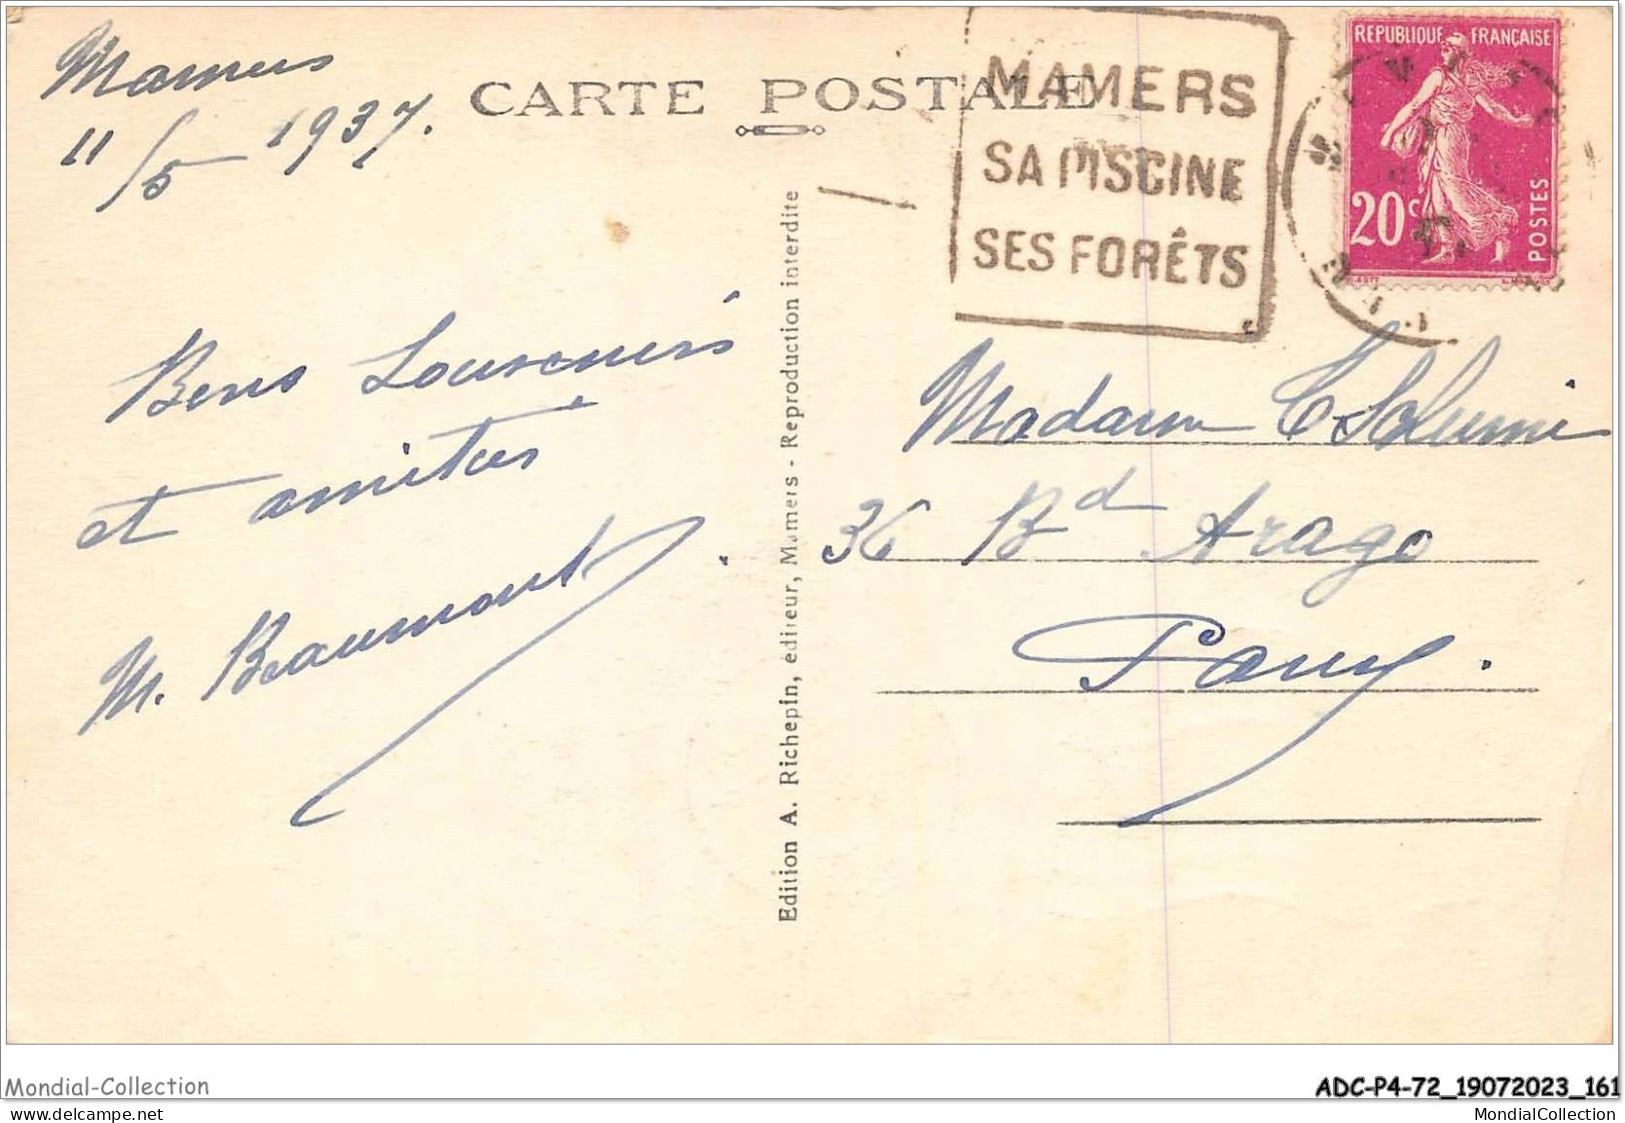 Mamers
11/5 1937.
CARTE POSTALE
MAMERS
SA PISCINE
SES FORÊTS
REPUBLIQUE FRANÇAISE
20c
POSTES
Bons Souvenirs
et amitiés
M. Beaumont.
Edition A. Richepin, éditeur, Mamers - Reproduction interdite
Madame
36 Bd Arago
Paris.
Mondial-Collection
ADC-P4-72_19072023_161
delcampe.net
MondialCollection